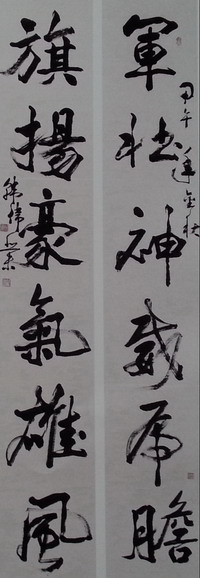 甲午年金秋
軍壯神威虎膽
旗揚豪氣雄風